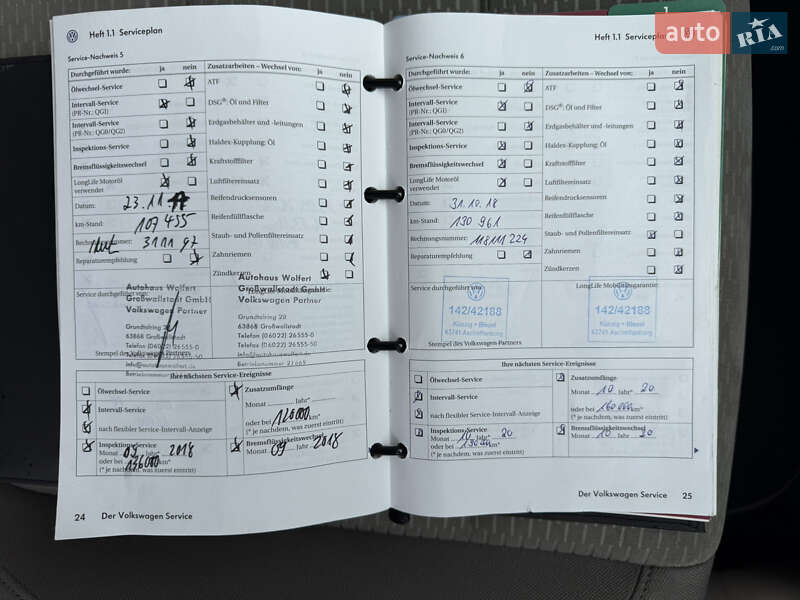 Heft 1.1 Serviceplan
Service-Nachweis 5
Durchgeführt wurde: ja nein
Zusatzarbeiten – Wechsel von: ja nein
Ölwechsel-Service
ATF
Intervall-Service
(PR-Nr.: QG1)
DSG®: Öl und Filter
Intervall-Service
(PR-Nr.: QG0/QG2)
Erdgasbehälter und -leitungen
Inspektions-Service
Haldex-Kupplung: Öl
Bremsflüssigkeitswechsel
Kraftstofffilter
LongLife Motoröl
verwendet
Luftfiltereinsatz
Datum: 23.11
Reifendrucksensoren
km-Stand: 107 455
Reifenfüllflasche
Rechnungsnummer: 3111 97
Staub- und Pollenfiltereinsatz
Reparaturempfehlung
Zahnriemen
Zündkerzen
Service durchgeführt von:
Autohaus Wolfert
Großwallstadt GmbH
Volkswagen Partner
Grundtalring 20
63868 Großwallstadt
Telefon (06022) 26555-0
Telefax (06022) 26555-50
Stempel des Volkswagen Partners
Autohaus Wolfert
Großwallstadt GmbH
Volkswagen Partner
Grundtalring 20
63868 Großwallstadt
Telefon (06022) 26555-0
Telefax (06022) 26555-50
Ihre nächsten Service-Ereignisse
Ölwechsel-Service
Intervall-Service
nach flexibler Service-Intervall-Anzeige
Zusatzumfänge
Monat Jahr*
oder bei 120000 km*
(* je nachdem, was zuerst eintritt)
Inspektions-Service
Monat 09 Jahr* 2018
oder bei 136000 km*
(* je nachdem, was zuerst eintritt)
Bremsflüssigkeitswechsel
Monat 09 Jahr 2018
24 Der Volkswagen Service
Heft 1.1 Serviceplan
Service-Nachweis 6
Durchgeführt wurde: ja nein
Zusatzarbeiten – Wechsel von: ja nein
Ölwechsel-Service
ATF
Intervall-Service
(PR-Nr.: QG1)
DSG®: Öl und Filter
Intervall-Service
(PR-Nr.: QG0/QG2)
Erdgasbehälter und -leitungen
Inspektions-Service
Haldex-Kupplung: Öl
Bremsflüssigkeitswechsel
Kraftstofffilter
LongLife Motoröl
verwendet
Luftfiltereinsatz
Datum: 31.10.18
Reifendrucksensoren
km-Stand: 130 961
Reifenfüllflasche
Rechnungsnummer: 118111 224
Staub- und Pollenfiltereinsatz
Reparaturempfehlung
Zahnriemen
Zündkerzen
Service durchgeführt von:
142/42188
63741 Aschaffenburg
Stempel des Volkswagen Partners
LongLife Mobilitätsgarantie:
142/42188
63741 Aschaffenburg
Ihre nächsten Service-Ereignisse
Ölwechsel-Service
Intervall-Service
nach flexibler Service-Intervall-Anzeige
Zusatzumfänge
Monat 10 Jahr* 20
oder bei 160 000 km*
(* je nachdem, was zuerst eintritt)
Inspektions-Service
Monat 10 Jahr* 20
oder bei km*
(* je nachdem, was zuerst eintritt)
Bremsflüssigkeitswechsel
Monat 10 Jahr 20
Der Volkswagen Service 25
auto RIA
.com